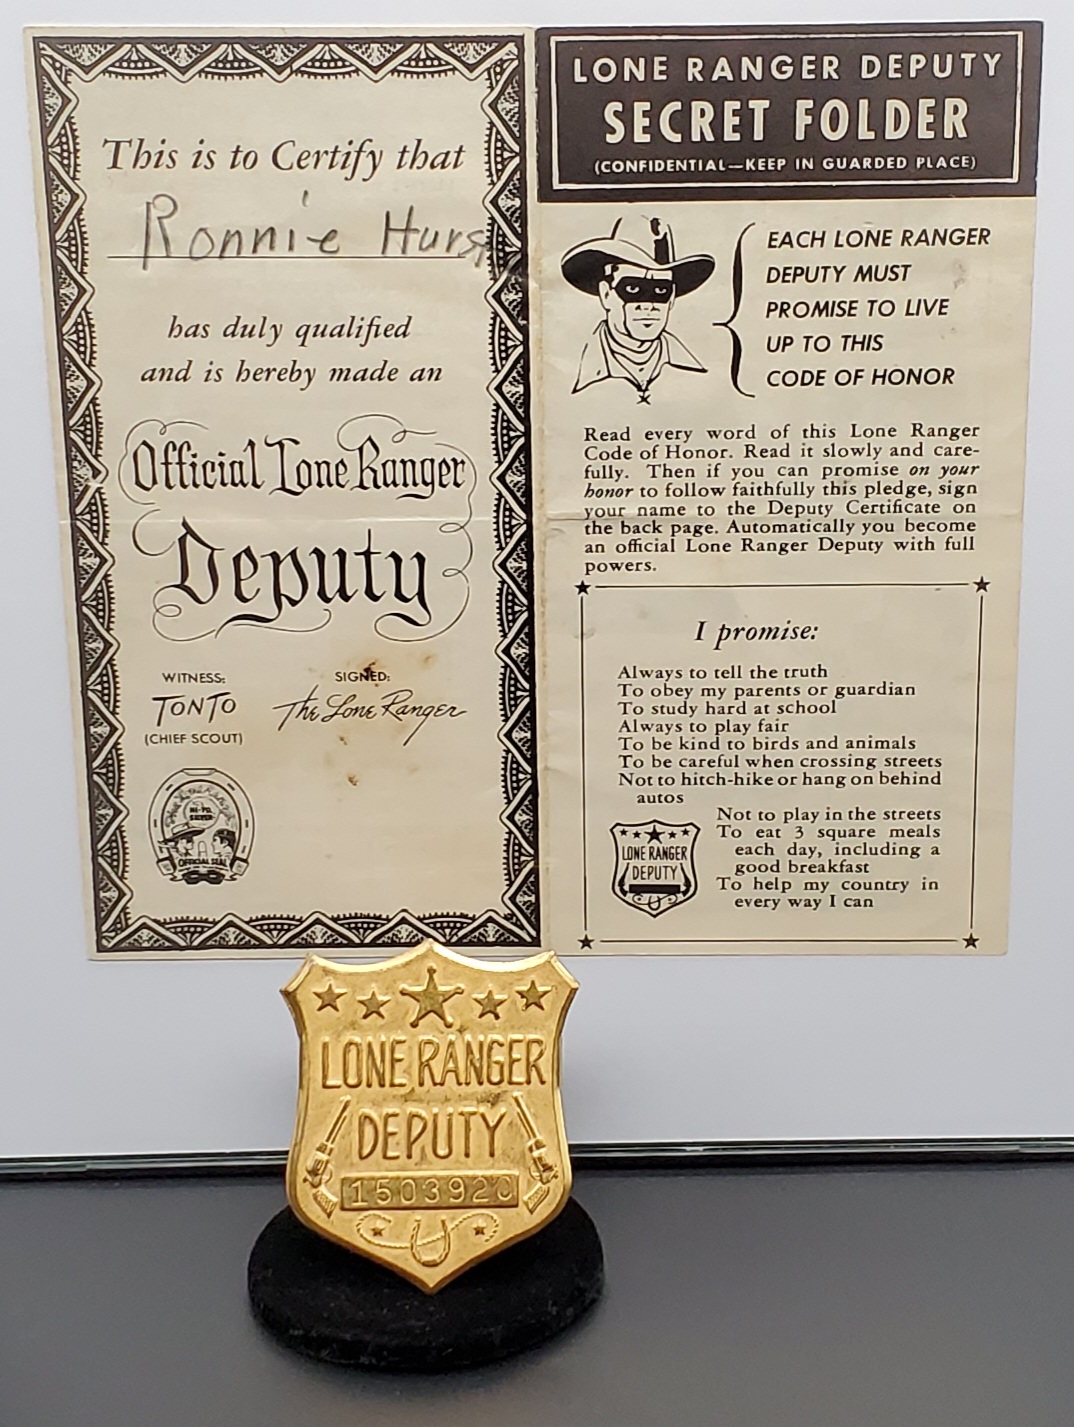 This is to Certify that
Ronnie Hurst
has duly qualified
and is hereby made an
Official Lone Ranger
Deputy
WITNESS:
TONTO
(CHIEF SCOUT)
SIGNED:
The Lone Ranger
HI-YO,
SILVER
OFFICIAL SEAL
LONE RANGER DEPUTY
SECRET FOLDER
(CONFIDENTIAL—KEEP IN GUARDED PLACE)
EACH LONE RANGER
DEPUTY MUST
PROMISE TO LIVE
UP TO THIS
CODE OF HONOR
Read every word of this Lone Ranger
Code of Honor. Read it slowly and care-
fully. Then if you can promise on your
honor to follow faithfully this pledge, sign
your name to the Deputy Certificate on
the back page. Automatically you become
an official Lone Ranger Deputy with full
powers.
I promise:
Always to tell the truth
To obey my parents or guardian
To study hard at school
Always to play fair
To be kind to birds and animals
To be careful when crossing streets
Not to hitch-hike or hang on behind
autos
Not to play in the streets
To eat 3 square meals
each day, including a
good breakfast
To help my country in
every way I can
LONE RANGER
DEPUTY
LONE RANGER
DEPUTY
1503920